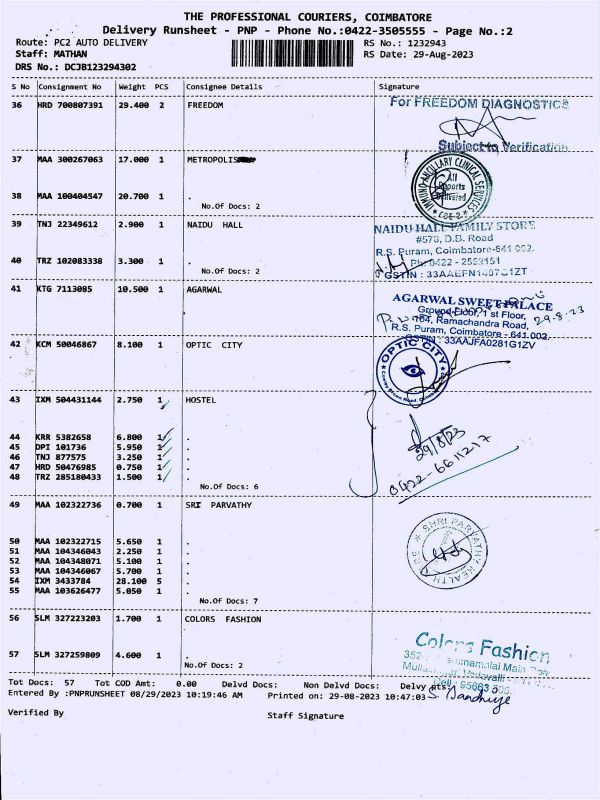 THE PROFESSIONAL COURIERS, COIMBATORE
Delivery Runsheet - PNP - Phone No.:0422-3505555 - Page No.:2
Route: PC2 AUTO DELIVERY
RS No.: 1232943
Staff: MATHAN
RS Date: 29-Aug-2023
DRS No.: DCJB123294302
S No Consignment No Weight PCS Consignee Details Signature
36 HRD 700807391 29.400 2 FREEDOM
For FREEDOM DIAGNOSTICS
Subject to Verification
37 MAA 300267063 17.000 1 METROPOLIS
IMMUNO-ANCILLARY CLINICAL SERVICES
All
Reports
Delivered
CBE-2
38 MAA 100404547 20.700 1 .
No.Of Docs: 2
39 TNJ 22349612 2.900 1 NAIDU HALL
NAIDU HALL FAMILY STORE
#573, D.B. Road
R.S. Puram, Coimbatore-641 002.
40 TRZ 102083338 3.300 1 .
Ph: 0422 - 2553151
No.Of Docs: 2
41 KTG 7113085 10.500 1 AGARWAL
AGARWAL SWEET PALACE
Ground Floor, 1 st Floor,
29.8.23
104, Ramachandra Road,
R.S. Puram, Coimbatore - 641 002.
GSTIN : 33AAJFA0281G1ZV
42 KCM 50046867 8.100 1 OPTIC CITY
OPTIC CITY
43 IXM 504431144 2.750 1 HOSTEL
44 KRR 5382658 6.800 1 .
45 DPI 101736 5.950 1 .
46 TNJ 877575 3.250 1 .
47 HRD 50476985 0.750 1 .
48 TRZ 285180433 1.500 1 .
No.Of Docs: 6
29/8/23
0422-6611217
49 MAA 102322736 0.700 1 SRI PARVATHY
SHRI PARVATHY HEALTH CARE
50 MAA 102322715 5.650 1 .
51 MAA 104346043 2.250 1 .
52 MAA 104348071 5.100 1 .
53 MAA 104346067 5.700 1 .
54 IXM 3433784 28.100 5 .
55 MAA 103626477 5.050 1 .
No.Of Docs: 7
56 SLM 327223203 1.700 1 COLORS FASHION
Colors Fashion
57 SLM 327259809 4.600 1 .
No.Of Docs: 2
Tot Docs: 57 Tot COD Amt: 0.00 Delvd Docs: Non Delvd Docs: Delvy
Entered By :PNPRUNSHEET 08/29/2023 10:19:46 AM Printed on: 29-08-2023 10:47:03
Verified By
Staff Signature